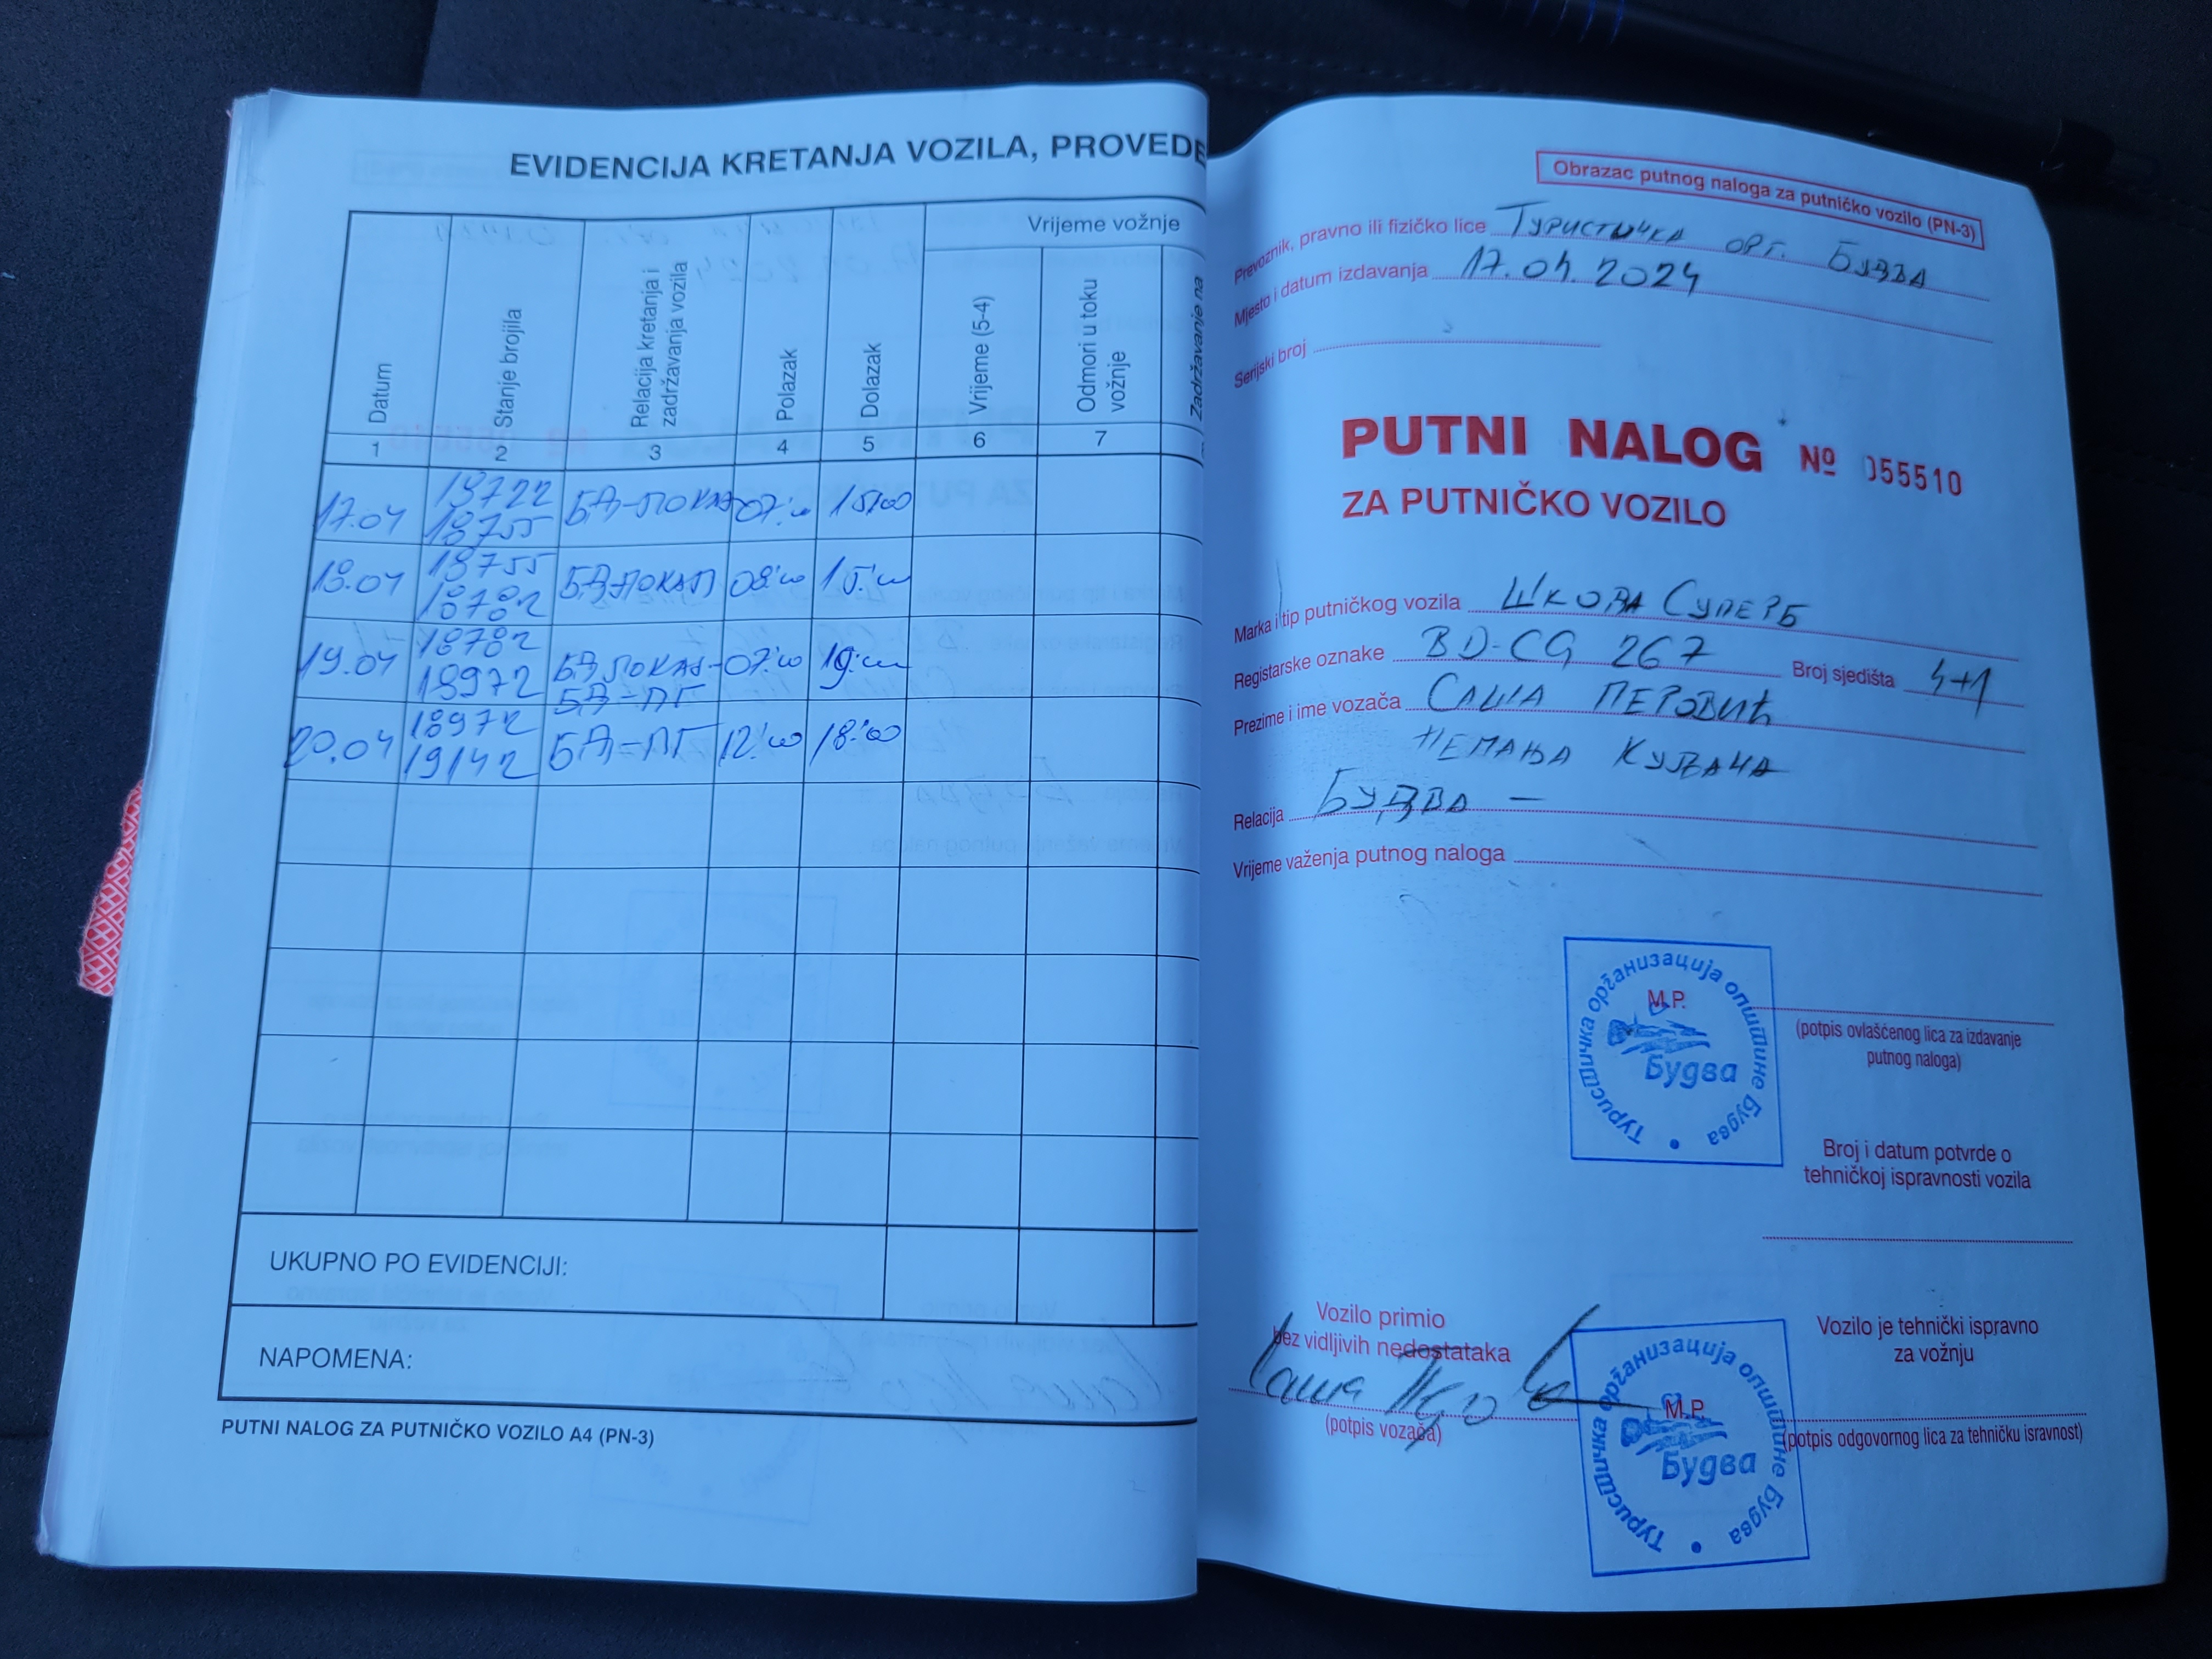 EVIDENCIJA KRETANJA VOZILA, PROVEDE
Datum
Stanje brojila
Relacija kretanja i
zadržavanja vozila
Polazak
Dolazak
Vrijeme vožnje
Vrijeme (5-4)
Odmori u toku
vožnje
Zadržavanje na
1 2 3 4 5 6 7
17.04 18722 БД-ЛОКАЛ 07:00 15:00
18755
18.04 18755 БД-ЛОКАЛ 08:00 15:00
18782
19.04 18782 БД ЛОКАЛ- 07:00 19:00
18972 БД-ПГ
20.04 18972 БД-ПГ 12:00 18:00
19142
UKUPNO PO EVIDENCIJI:
NAPOMENA:
PUTNI NALOG ZA PUTNIČKO VOZILO A4 (PN-3)
Obrazac putnog naloga za putničko vozilo (PN-3)
Prevoznik, pravno ili fizičko lice ТУРИСТИЧКА ОРГ. БУДВА
Mjesto i datum izdavanja 17.04.2024
Serijski broj
PUTNI NALOG № 055510
ZA PUTNIČKO VOZILO
Marka i tip putničkog vozila ШКОДА СУПЕРБ
Registarske oznake BD-CG 267 Broj sjedišta 4+1
Prezime i ime vozača САША ПЕРОВИЋ
НЕМАЊА КУЉАЧА
Relacija БУДВА -
Vrijeme važenja putnog naloga
Туристичка организација општине Будва
M.P.
Будва
(potpis ovlašćenog lica za izdavanje
putnog naloga)
Broj i datum potvrde o
tehničkoj ispravnosti vozila
Vozilo primio
bez vidljivih nedostataka
Саша
(potpis vozača)
Туристичка организација општине Будва
M.P.
Будва
Vozilo je tehnički ispravno
za vožnju
(potpis odgovornog lica za tehničku isravnost)